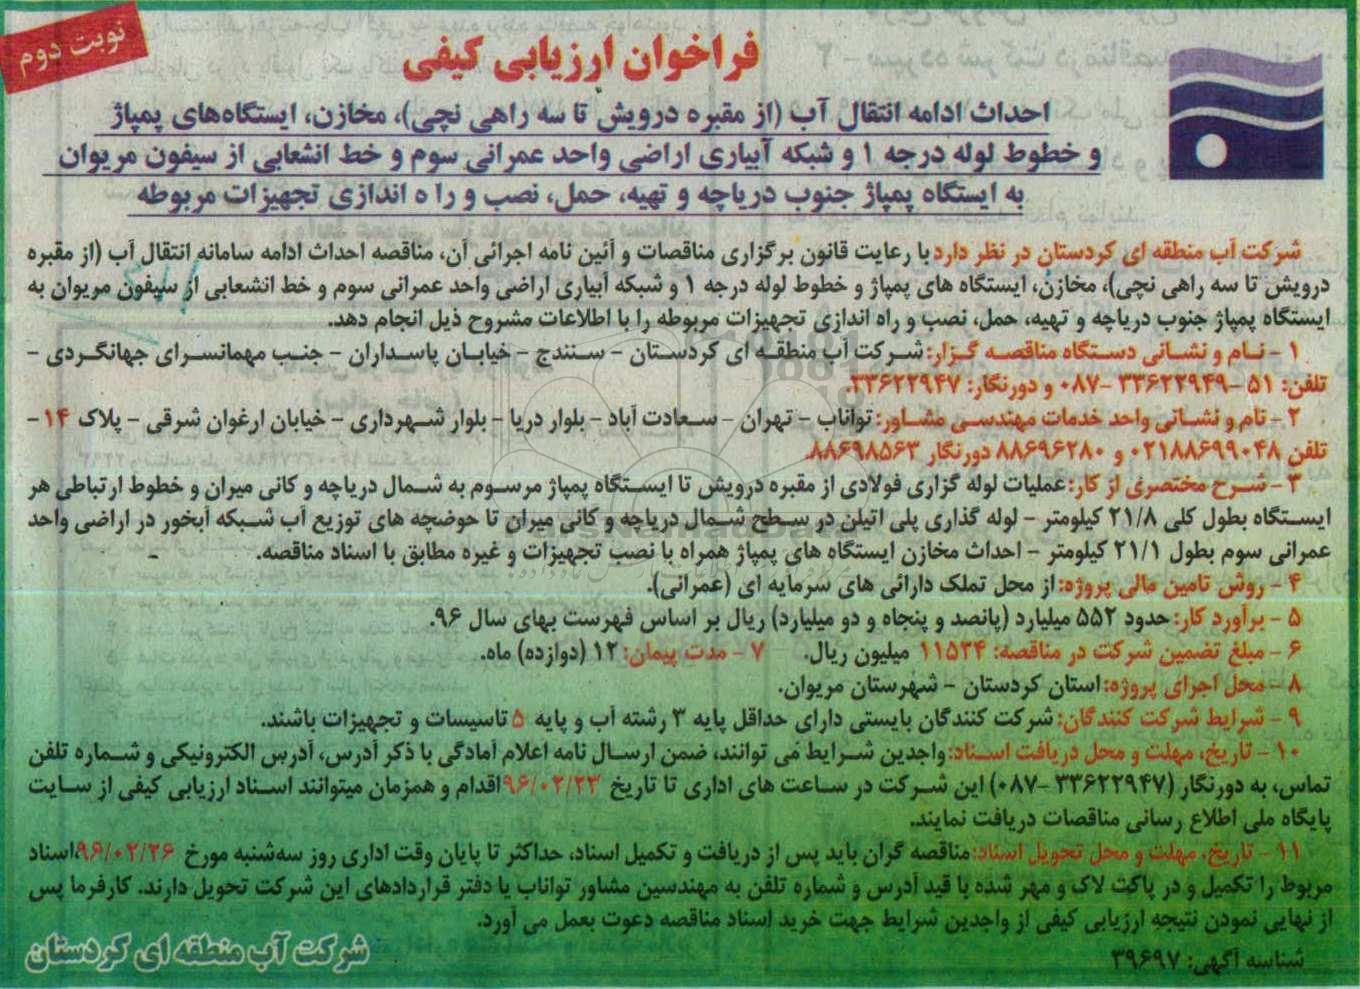 نوبت دوم
فراخوان ارزیابی کیفی
احداث ادامه انتقال آب (از مقبره درویش تا سه راهی نچی)، مخازن، ایستگاه‌های پمپاژ
و خطوط لوله درجه ۱ و شبکه آبیاری اراضی واحد عمرانی سوم و خط انشعابی از سیفون مریوان
به ایستگاه پمپاژ جنوب دریاچه و تهیه، حمل، نصب و را ه اندازی تجهیزات مربوطه
شرکت آب منطقه ای کردستان در نظر دارد با رعایت قانون برگزاری مناقصات و آئین نامه اجرائی آن، مناقصه احداث ادامه سامانه انتقال آب (از مقبره
درویش تا سه راهی نچی)، مخازن، ایستگاه های پمپاژ و خطوط لوله درجه ۱ و شبکه آبیاری اراضی واحد عمرانی سوم و خط انشعابی از سیفون مریوان به
ایستگاه پمپاژ جنوب دریاچه و تهیه، حمل، نصب و راه اندازی تجهیزات مربوطه را با اطلاعات مشروح ذیل انجام دهد.
۱ - نـام و نشـانی دستـگاه مناقصـه گـزار: شـرکت آب منطقـه ای کردسـتان - سـنندج - خیابـان پاسـداران - جنـب مهمانسـرای جهانگـردی -
تلفن: ۵۱ -۳۳۶۲۲۹۴۹ -۰۸۷ و دورنگار: ۳۳۶۲۲۹۴۷.
۲ - نام و نشـانی واحد خدمات مهندسـی مشـاور: تواناب - تهران - سـعادت آباد - بلوار دریا - بلوار شـهرداری - خیابان ارغوان شرقی - پلاک ۱۴ -
تلفن ۰۲۱۸۸۶۹۹۰۴۸ و ۸۸۶۹۶۲۸۰ دورنگار ۸۸۶۹۸۵۶۳.
۳ - شـرح مختصری از کار: عملیات لوله گزاری فولادی از مقبره درویش تا ایسـتگاه پمپاژ مرسـوم به شـمال دریاچه و کانی میران و خطوط ارتباطی هر
ایسـتگاه بطول کلی ۲۱/۸ کیلومتر - لوله گذاری پلی اتیلن در سـطح شـمال دریاچه و کانی میران تا حوضچه های توزیع آب شـبکه آبخور در اراضی واحد
عمرانی سوم بطول ۲۱/۱ کیلومتر - احداث مخازن ایستگاه های پمپاژ همراه با نصب تجهیزات و غیره مطابق با اسناد مناقصه.
۴ - روش تامین مالی پروژه: از محل تملک دارائی های سرمایه ای (عمرانی).
۵ - برآورد کار: حدود ۵۵۲ میلیارد (پانصد و پنجاه و دو میلیارد) ریال بر اساس فهرست بهای سال ۹۶.
۶ - مبلغ تضمین شرکت در مناقصه: ۱۱۵۳۴ میلیون ریال. ۷ - مدت پیمان: ۱۲ (دوازده) ماه.
۸ - محل اجرای پروژه: استان کردستان - شهرستان مریوان.
۹ - شرایط شرکت کنندگان: شرکت کنندگان بایستی دارای حداقل پایه ۳ رشته آب و پایه ۵ تاسیسات و تجهیزات باشند.
۱۰ - تاریخ، مهلت و محل دریافت اسـناد: واجدین شـرایط می توانند، ضمن ارسـال نامه اعلام آمادگی با ذکر آدرس، آدرس الکترونیکی و شـماره تلفن
تماس، به دورنگار (۳۳۶۲۲۹۴۷ -۰۸۷) این شـرکت در سـاعت های اداری تا تاریخ ۹۶/۰۲/۲۳ اقدام و همزمان میتوانند اسـناد ارزیابی کیفی از سـایت
پایگاه ملی اطلاع رسانی مناقصات دریافت نمایند.
۱۱ - تاریخ، مهلت و محل تحویل اسناد: مناقصه گران باید پس از دریافت و تکمیل اسناد، حداکثر تا پایان وقت اداری روز سه‌شنبه مورخ ۹۶/۰۲/۲۶، اسناد
مربوط را تکمیل و در پاکت لاک و مهر شده با قید آدرس و شماره تلفن به مهندسین مشاور تواناب یا دفتر قراردادهای این شرکت تحویل دارند. کارفرما پس
از نهایی نمودن نتیجه ارزیابی کیفی از واجدین شرایط جهت خرید اسناد مناقصه دعوت بعمل می آورد.
شناسه آگهی: ۳۹۶۹۷
شرکت آب منطقه ای کردستان